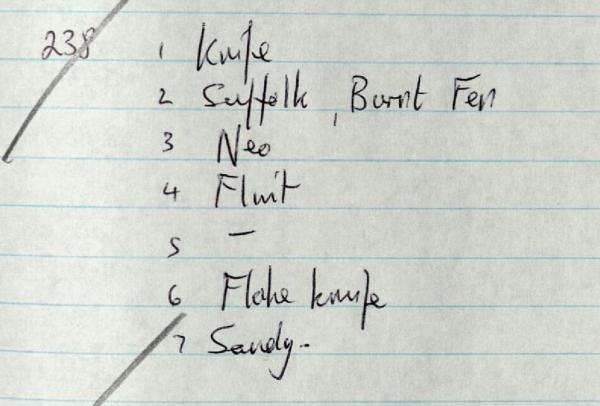 238 1 Knife
2 Suffolk, Burnt Fen
3 Neo
4 Flint
5 —
6 Flake knife
7 Sandy.